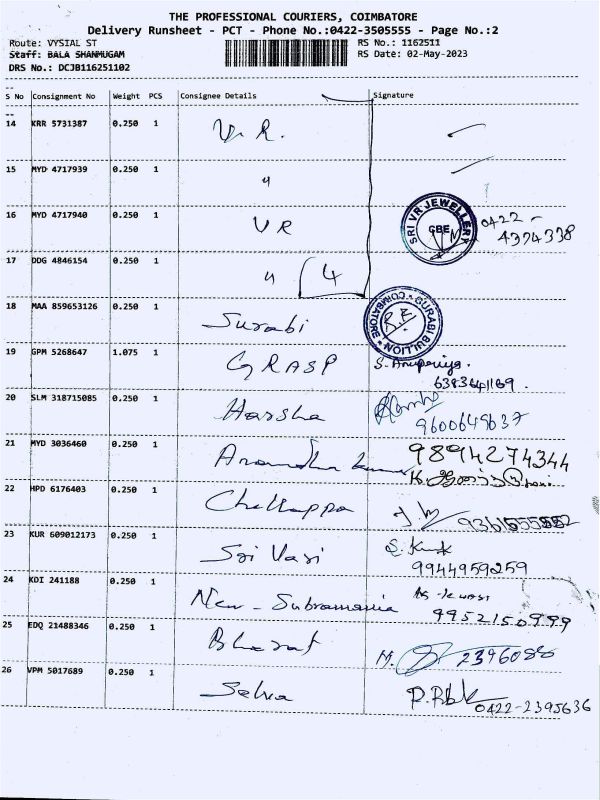 THE PROFESSIONAL COURIERS, COIMBATORE
Delivery Runsheet - PCT - Phone No.:0422-3505555 - Page No.:2
Route: VYSIAL ST RS No.: 1162511
Staff: BALA SHANMUGAM RS Date: 02-May-2023
DRS No.: DCJB116251102
S No Consignment No Weight PCS Consignee Details Signature
14 KRR 5731387 0.250 1 V. R.
15 MYD 4717939 0.250 1 "
16 MYD 4717940 0.250 1 VR SRI VR JEWELLERY CBE 0422-
4374338
17 DDG 4846154 0.250 1 " 4
18 MAA 859653126 0.250 1 Surabi SURABI BULLION COIMBATORE
19 GPM 5268647 1.075 1 GRASP S. Anupriya.
6383641169.
20 SLM 318715085 0.250 1 Harsha
9600649637
21 MYD 3036460 0.250 1 9894274344
22 HPD 6176403 0.250 1 Chellappa
23 KUR 609012173 0.250 1 Sri Vasi
9944959259
24 KDI 241188 0.250 1 New - Subramania
9952150999
25 EDQ 21488346 0.250 1 Bharat 2396088
26 VPM 5017689 0.250 1 Selva
0422-2395636